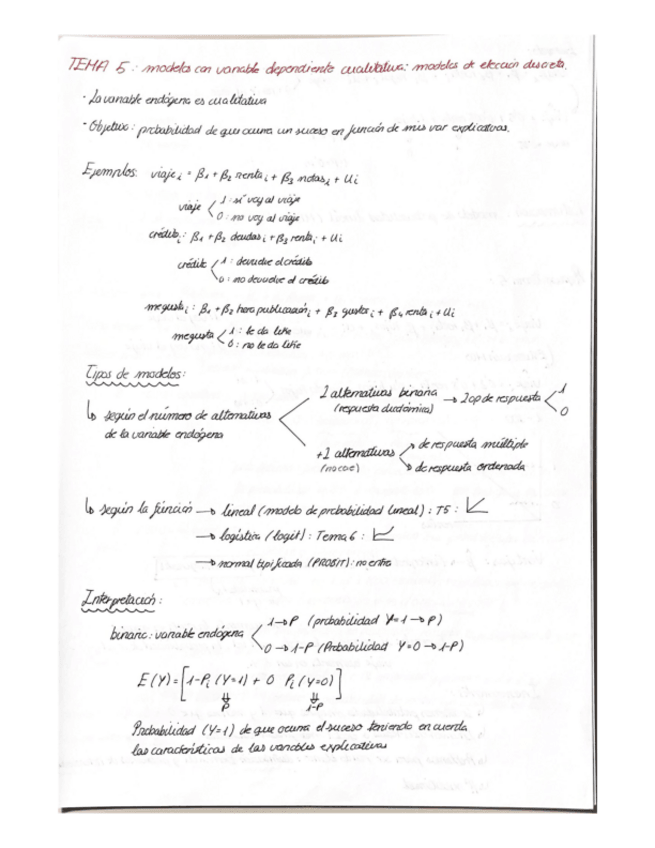 TEMA 5: modelos con variable dependiente cualitativa: modelos de elección discreta.
· La variable endógena es cualitativa
· Objetivo: probabilidad de que ocurra un suceso en función de mis var explicativas.
Ejemplos: viaje i = β1 + β2 renta i + β3 notas i + Ui
viaje < 1: sí voy al viaje
0: no voy al viaje
crédito i: β1 + β2 deudas i + β3 renta i + Ui
crédito < 1: devuelve el crédito
0: no devuelve el crédito
megusta i: β1 + β2 hora publicación i + β3 gustos i + β4 renta i + Ui
megusta < 1: le da like
0: no le da like
Tipos de modelos:
↳ según el número de alternativas de la variable endógena
2 alternativas binaria (respuesta dicotómica) → 2 op de respuesta < 1 0
+2 alternativas (no cae) → de respuesta múltiple
→ de respuesta ordenada
↳ según la función → lineal (modelo de probabilidad lineal): T5:
→ logística (logit): Tema 6:
→ normal tipificada (PROBIT): no entra
Interpretación:
binaria: variable endógena < 1 → P (probabilidad Y=1 → P)
0 → 1-P (Probabilidad Y=0 → 1-P)
E(Y) = [1-Pi (Y=1) + 0 Pi (Y=0)]
⇓ P ⇓ 1-P
Probabilidad (Y=1) de que ocurra el suceso teniendo en cuenta
las características de las variables explicativas